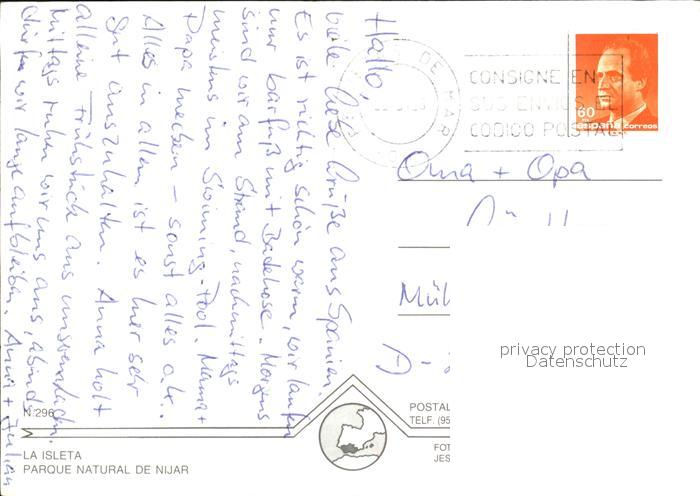 Hallo,
viele liebe Grüße aus Spanien.
Es ist richtig schön warm, wir laufen
nur barfuß mit Badehose. Morgens
sind wir am Strand, nachmittags
meistens im Swimming-Pool. Mama +
Papa - sonst alles ok.
Alles in allem ist es hier sehr
gut auszuhalten. Anna holt
alleine Frühstück aus
Mittags ruhen wir uns aus, abends
dürfen wir lange aufbleiben. Anna + Julian
DE MAR
CONSIGNE EN
SUS ENVIOS EL
CODIGO POSTAL
60
españa correos
Oma + Opa
Mül
privacy protection
Datenschutz
N.296
LA ISLETA
PARQUE NATURAL DE NIJAR
POSTAL
TELF. (95
FOT
JES